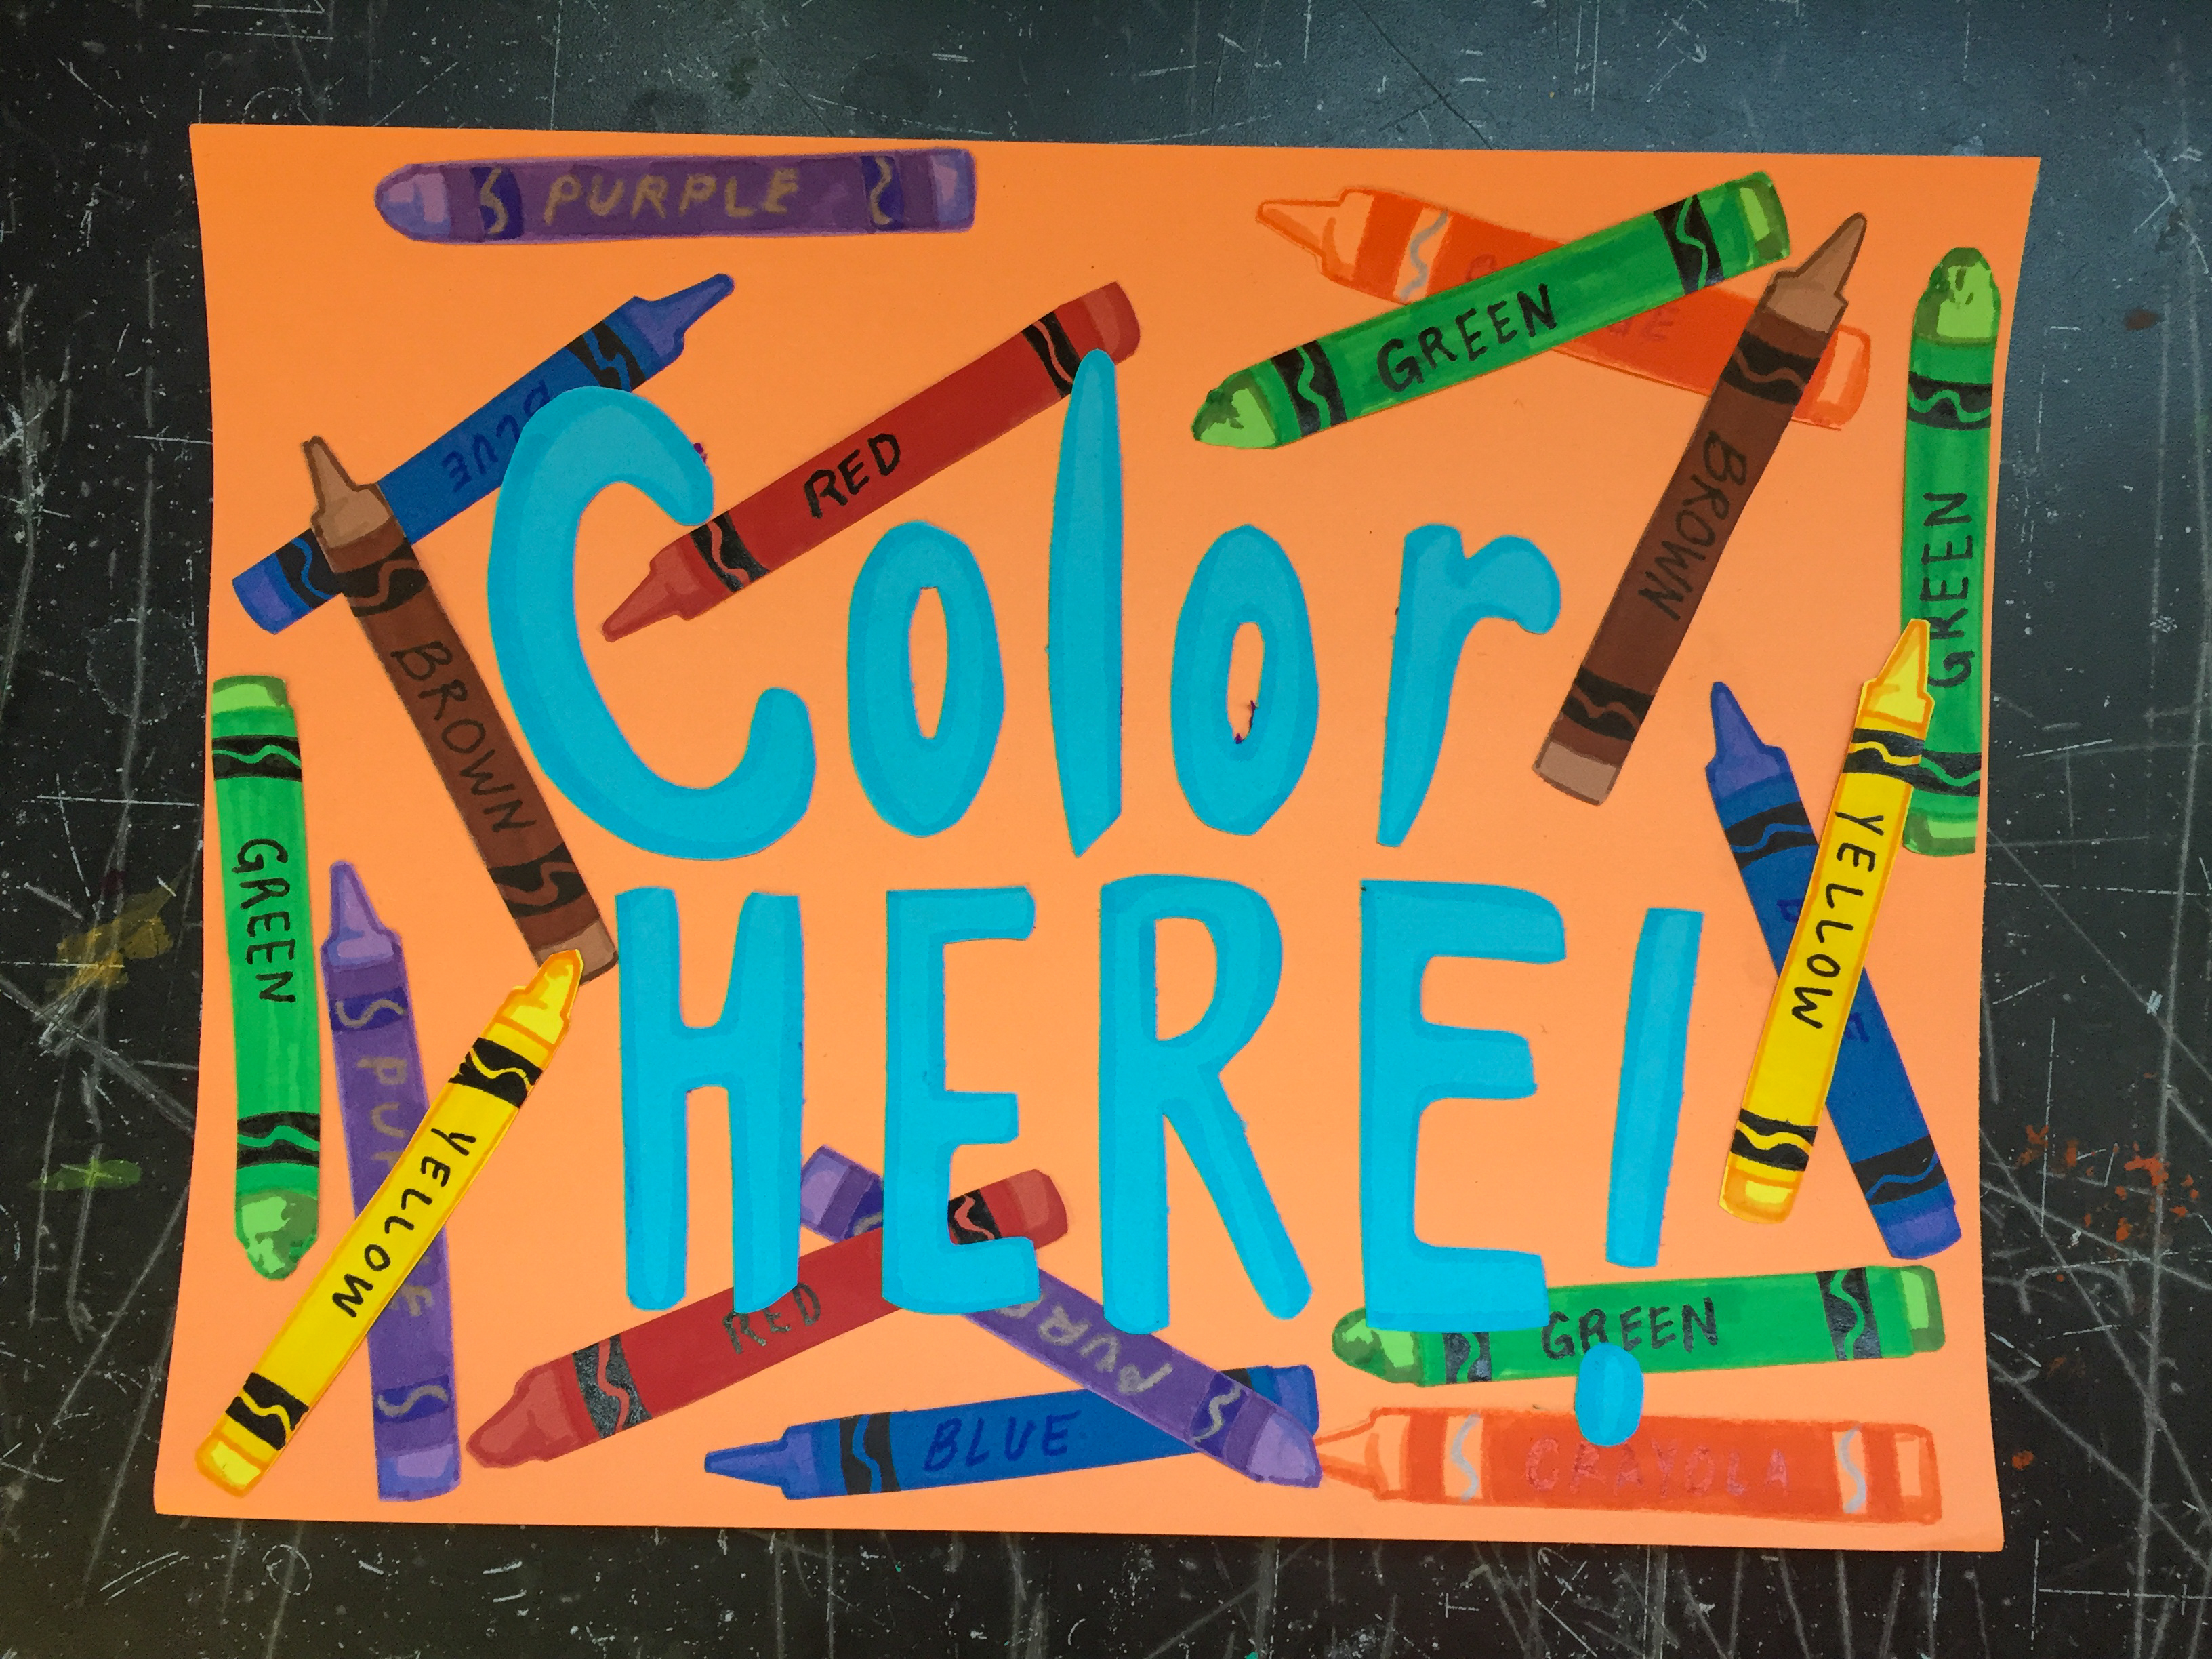 PURPLE
BLUE
RED
GREEN
BROWN
GREEN
BROWN
Color
HERE!
GREEN
YELLOW
YELLOW
RED
GREEN
BLUE
CRAYOLA